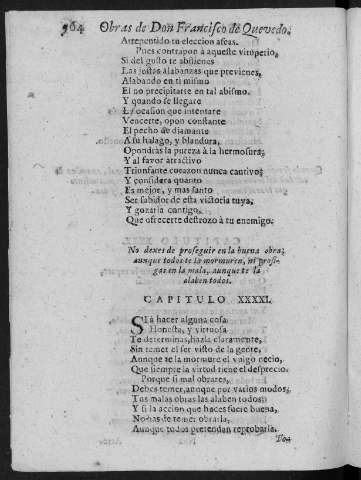 364 Obras de Don Francisco de Quevedo.
Arrepentido tu eleccion afeas.
Pues contrapon à aqueste vituperio,
Si del gusto te abstienes
Las justas alabanzas que previenes,
Alabando en ti mismo
El no precipitarte en tal abismo.
Y quando se llegare
La ocasion que intentare
Vencerte, opon constante
El pecho de diamante
A su halago, y blandura,
Opondràs la pureza à la hermosura;
Y al favor atractivo
Trionfante corazon nunca cautivo;
Y considera quanto
Es mejor, y mas santo
Ser sabidor de esta victoria tuya,
Y gozarla contigo,
Que ofrecerte destrozo à tu enemigo.
No dexes de proseguir en la buena obra,
aunque todos te la mormuren, ni prosi-
gas en la mala, aunque te la
alaben todos.
CAPITULO XXXXI.
SI à hacer alguna cosa
Honesta, y virtuosa
Te determinas, hazla claramente,
Sin temer el ser visto de la gente,
Aunque te la mormure el vulgo necio,
Que siempre la virtud tiene el desprecio.
Porque si mal obrares,
Debes temer, aunque por varios modos,
Tus malas obras las alaben todos:
Y si la accion que haces fuere buena,
No has de temer obrarla,
Aunque todos pretendan reprobarla.